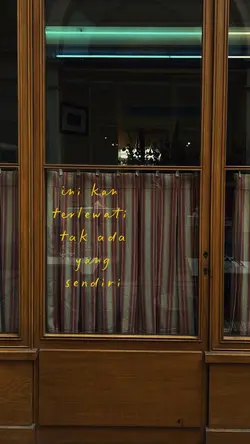 ini kan
terlewati
tak ada
yang
sendiri